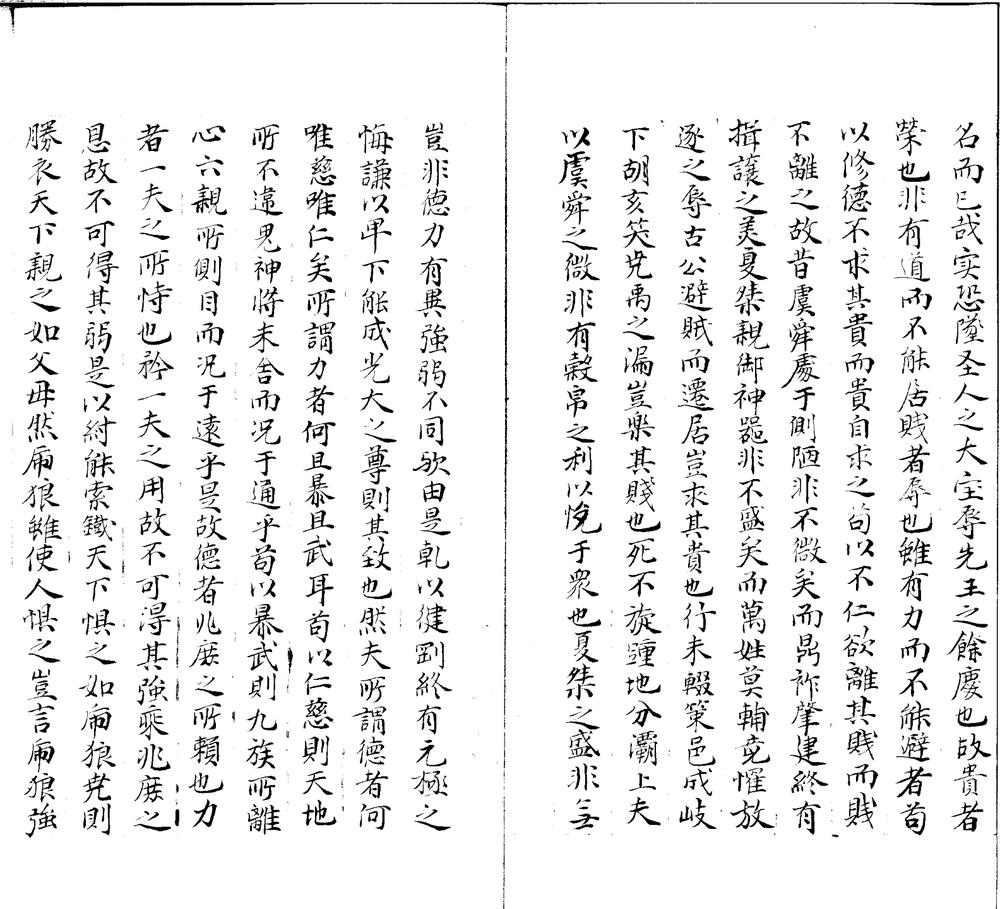 名而已哉实恐墜圣人之大宝辱先王之餘慶也故貴者
榮也非有道而不能居賎者辱也雖有力而不能避者苟
以修德不求其貴而貴自求之苟以不仁欲離其賎而賎
不離之故昔虞舜處于側陋非不微矣而鼎祚肇建終有
揖讓之美夏桀親御神器非不盛矣而萬姓莫輔竟罹放
逐之辱古公避賊而遷居豈求其貴也行未輟策邑成岐
下胡亥笑尭禹之漏豈樂其賤也死不旋踵地分灞上夫
以虞舜之微非有榖帛之利以悅于衆也夏桀之盛非三
豈非德力有異強弱不同欤由是乹以健剛終有元極之
悔謙以卑下能成光大之尊則其致也然夫所謂德者何
唯慈唯仁矣所謂力者何且暴且武耳苟以仁慈則天地
所不違鬼神将来舍而况于通乎苟以暴武則九族所離
心六親所側目而况于遠乎是故德者兆庶之所賴也力
者一夫之所恃也矜一夫之用故不可得其強乘兆庶之
恳故不可得其弱是以紂能索鐵天下惧之如虎狼尭則
勝衣天下親之如父母然虎狼雖使人惧之豈言虎狼強